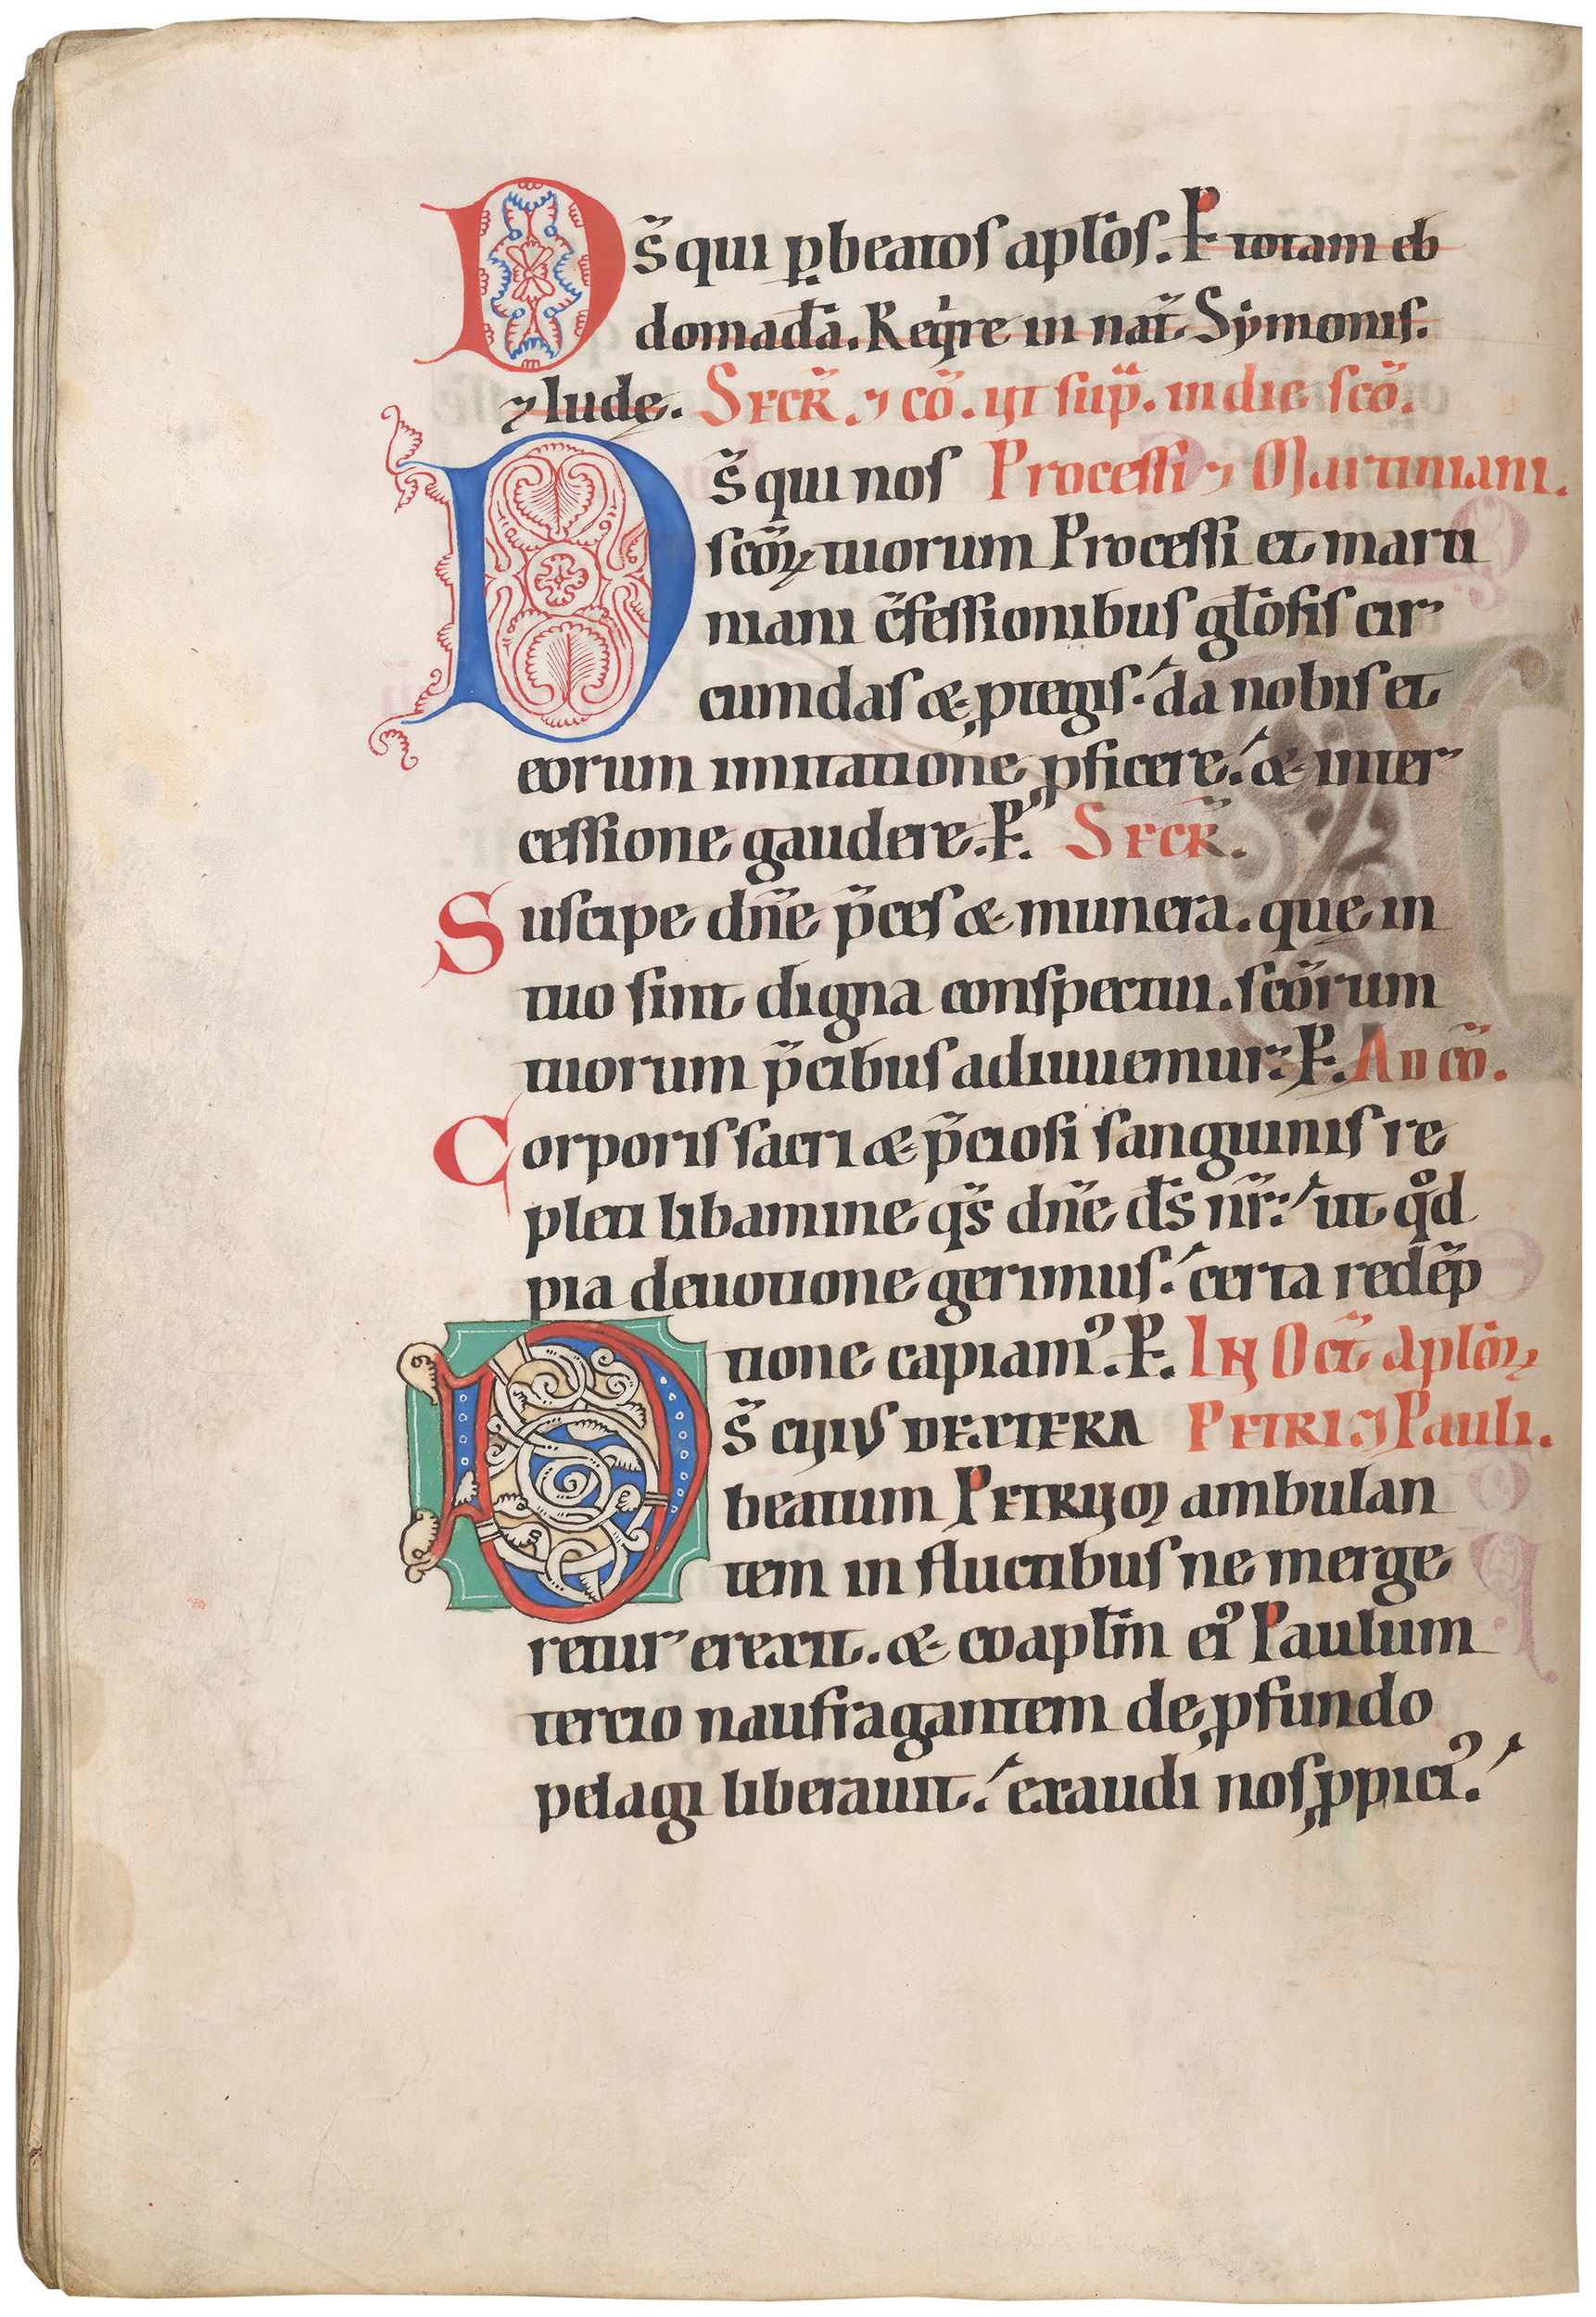 Ds̄ qui ꝑ beatos apl̄os. P totam eb
domad̄a. Req̇re in nat̄ Sẏmonis.
⁊ Iude. SECR̄. ⁊ cō. ut sup̄. in die sc̄o.
Ds̄ qui nos Processi ⁊ Martiniani.
sc̄oꝝ tuorum Processi et marti
niani c̄fessionibus gl̄osis cir
cumdas & ꝓtegis. da nobis et
eorum imitatione ꝓficere. & inter
cessione gaudere. P. SECR̄.
Suscipe dn̄e p̄ces & munera. quę in
tuo sint digna conspectui. sc̄orum
tuorum p̄cibus adiuuemur. P. AD cō.
Corporis sacri & p̄ciosi sanguinis re
pleti libamine qs̄ dn̄e ds̄ nr̄. ut qͦd
pia deuotione gerimus. certa redēp
tione capiamꝰ. P. IN Oct̄ aplōꝝ
Ds̄ CUIUS DEXTERA PETRI ⁊ Pauli.
beatum PETRUM ambulan
tem in fluctibus ne merge
retur erexit. & coapl̄m eiꝰ Paulum
tercio naufragantem de ꝓfundo
pelagi liberauit. exaudi nos ꝓpiciꝰ.